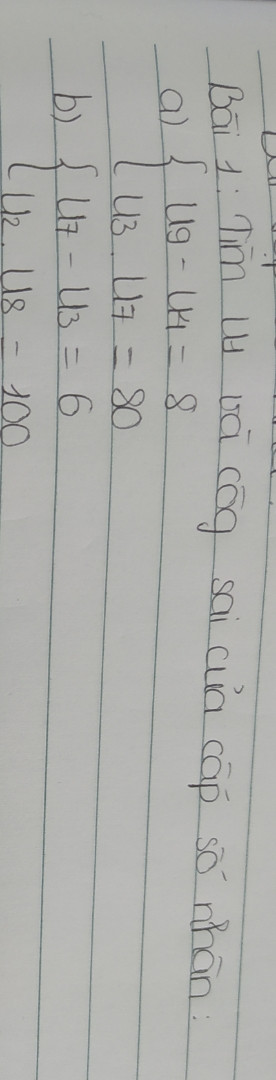 Bài 1: Tìm u1 và công sai của cấp số nhân:
a) { u9 - u1 = 8
u3 . u7 = 80
b) { u7 - u3 = 6
u2 . u8 = 100